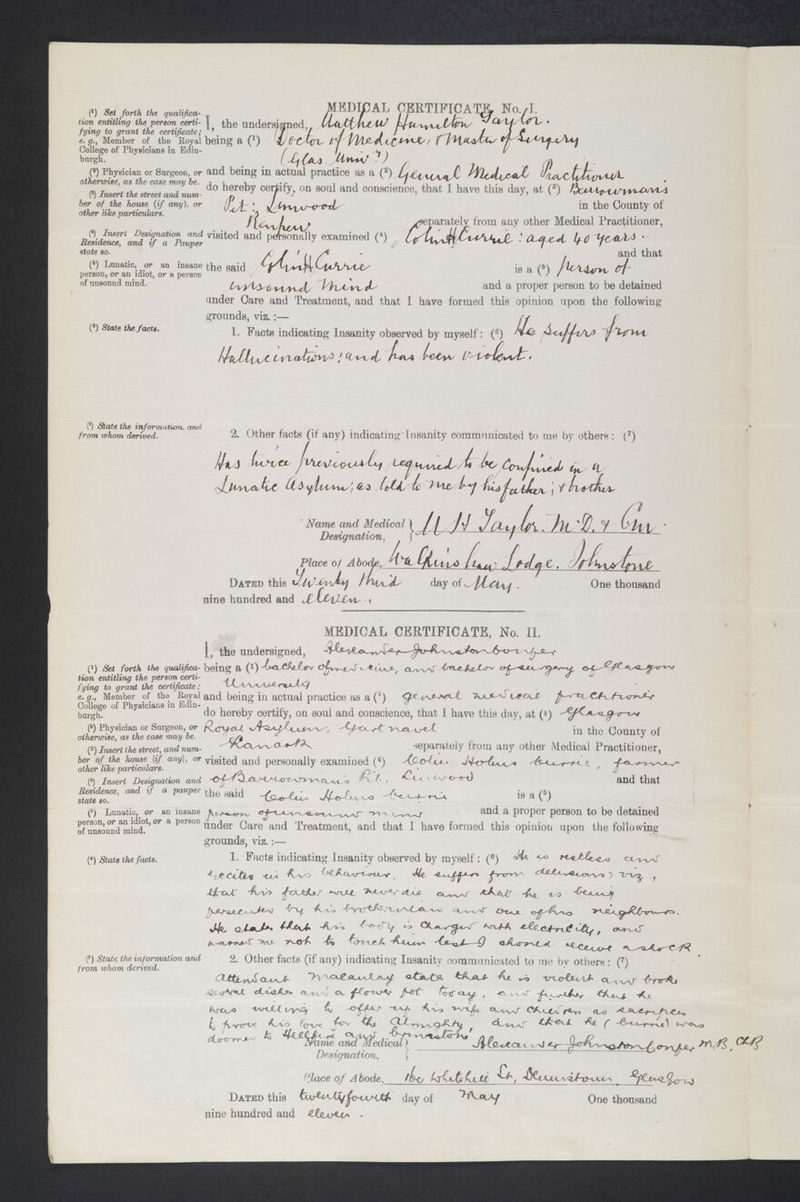 MEDICAL CERTIFICATE, No. I.
(¹) Set forth the qualifica-
tion entitling the person certi-
fying to grant the certificate;
e. g., Member of the Royal
College of Physicians in Edin-
burgh.
(²) Physician or Surgeon, or
otherwise, as the case may be.
(³) Insert the street and num-
ber of the house (if any), or
other like particulars.
(⁴) Insert Designation and
Residence, and if a Pauper
state so.
(⁵) Lunatic, or an insane
person, or an idiot, or a person
of unsound mind.
(⁶) State the facts.
(⁷) State the information, and
from whom derived.
I, the undersigned, Matthew Hamilton Taylor.
being a (¹) Doctor of Medicine, & Master of Surgery
(Glas Univ)
and being in actual practice as a (²) General Medical Practitioner
do hereby certify, on soul and conscience, that I have this day, at (³) Barrowmans
Pit; Linwood in the County of
Renfrew separately from any other Medical Practitioner,
visited and personally examined (⁴) Colin H Currie: aged 40 years.
and that
the said Colin H Currie is a (⁵) person of
unsound mind and a proper person to be detained
under Care and Treatment, and that I have formed this opinion upon the following
grounds, viz.:—
1. Facts indicating Insanity observed by myself: (⁶) He suffers from
Hallucinations; and has been violent.
2. Other facts (if any) indicating Insanity communicated to me by others: (⁷)
Has twice previously required to be confined in a
Lunatic Asylum; as told to me by his father; & brother
Name and Medical Designation, M H Taylor. M.D. & Cm.
Place of Abode, Lodge. Johnstone
DATED this Twenty third day of May. One thousand
nine hundred and eleven.
MEDICAL CERTIFICATE, No. II.
(¹) Set forth the qualifica-
tion entitling the person certi-
fying to grant the certificate;
e. g., Member of the Royal
College of Physicians in Edin-
burgh.
(²) Physician or Surgeon, or
otherwise, as the case may be.
(³) Insert the street, and num-
ber of the house (if any), or
other like particulars.
(⁴) Insert Designation and
Residence, and if a pauper
state so.
(⁵) Lunatic, or an insane
person, or an idiot, or a person
of unsound mind.
(⁶) State the facts.
(⁷) State the information and
from whom derived.
I, the undersigned, Alexander Johnston
being a (¹) bachelor of medicine, and bachelor of surgery of Glasgow
University
and being in actual practice as a (²) general medical practitioner
do hereby certify, on soul and conscience, that I have this day, at (³) Glasgow
Royal Asylum, Gartnavel in the County of
Lanark separately from any other Medical Practitioner,
visited and personally examined (⁴) Colin Holms Currie, farmer
of Barrowmans Pit, Linwood and that
the said Colin Holms Currie is a (⁵)
person of unsound mind and a proper person to be detained
under Care and Treatment, and that I have formed this opinion upon the following
grounds, viz.:—
1. Facts indicating Insanity observed by myself: (⁶) He is restless and
excited in his behaviour. He suffers from delusions; viz,
that his father will never die and that he is being
persecuted by his brother in law and one of his neighbours.
He states that his body is charged with electricity, and
warned me not to touch him lest I should receive a shock
2. Other facts (if any) indicating Insanity communicated to me by others: (⁷)
Attendant Macaulay states that he is violent and broke
several dishes and a flower pot today, and further that he
was willing to offer up his wife and children as sacrifices
to prove his love for the Almighty, and that he (Currie) was
doomed to Hellfire and brimstone
Name and Medical Designation, Alexander Johnston M.B., Ch.B
Place of Abode, Whitehill St, Dennistoun Glasgow
DATED this twentyfourth day of May One thousand
nine hundred and eleven.